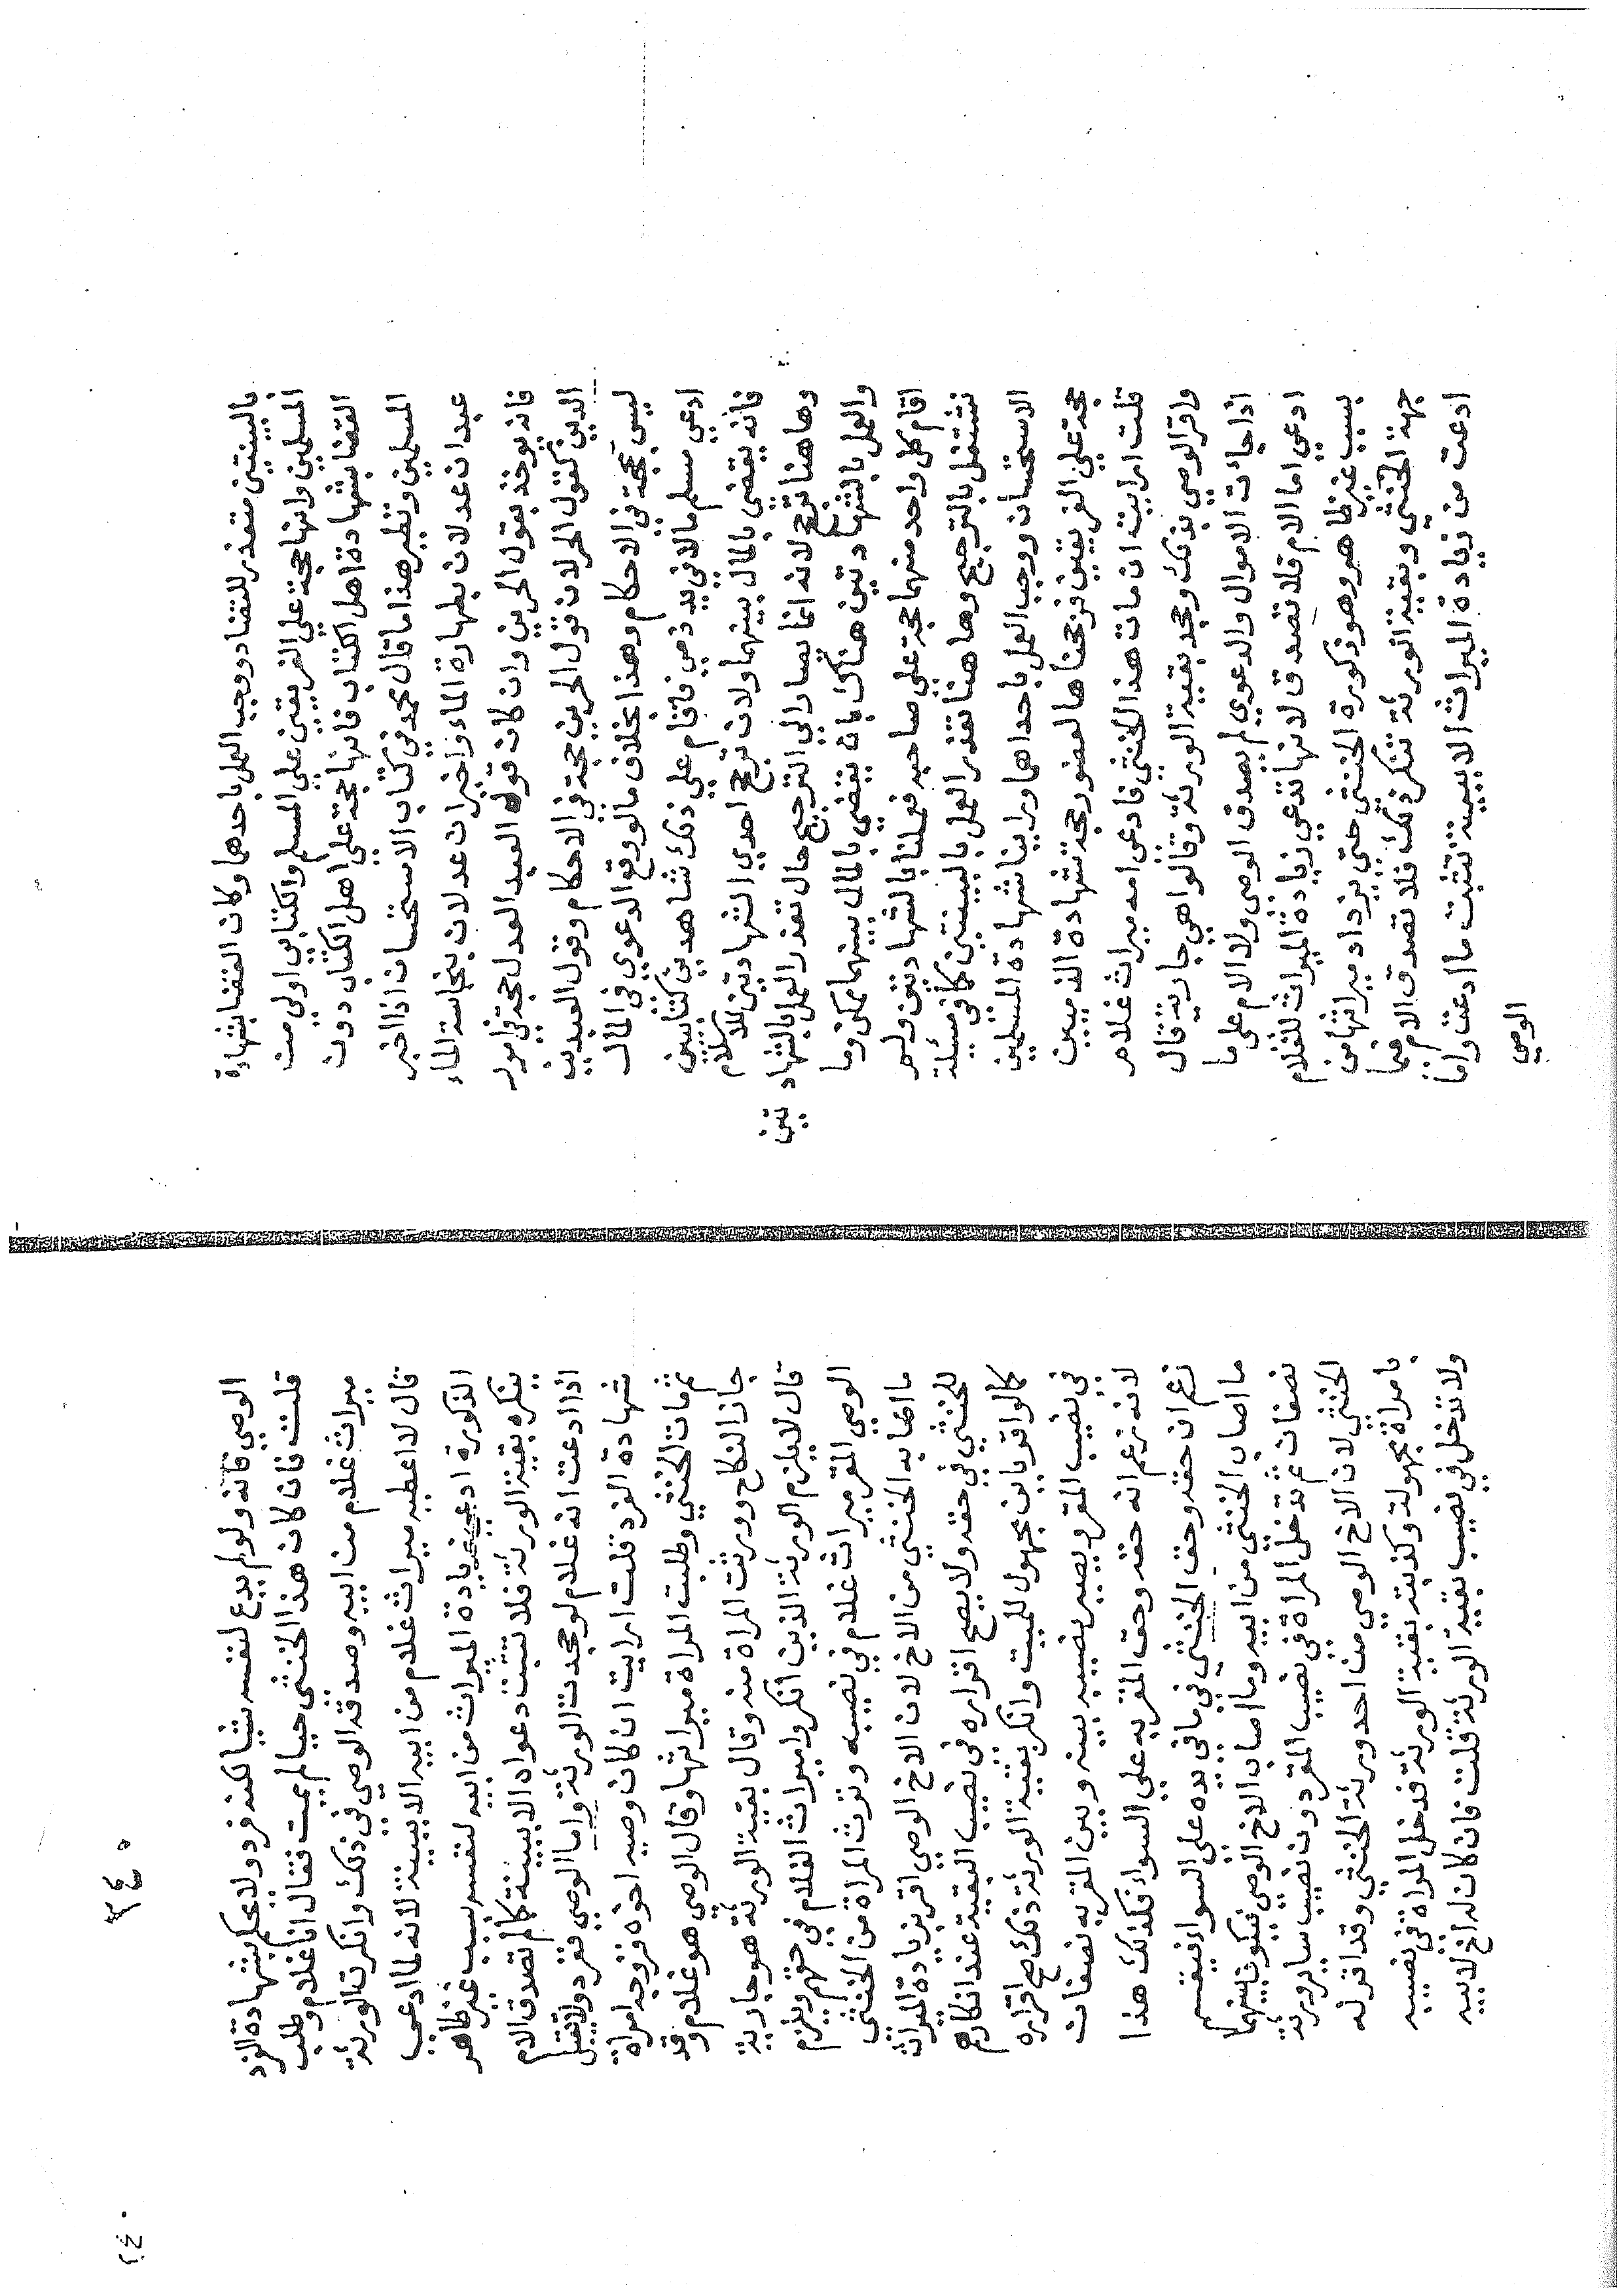 بالبينتين متعذر للتضاد ووجب العمل باحدهما وكان القضا بشهادة
المسلمين وانها حجة علي الفريقين علي المسلم والكتابي اولي من
القضا بشهادة اهل الكتاب فانها حجة علي اهل الكتاب دون
المسلمين ونظير هذا ما قال محمد في كتاب الاستحسان اذا اخبر
عبدان عدلان بطهارة الماء واخبر ان عدلان بنجاسة الماء
فانه يوخذ بقول الحرين وان كان قول العبد العدل حجة في امور
الدين كقول الحر لان قول الحرين حجة في الاحكام وقول العبدين
ليس بحجة في الاحكام وهذا بخلاف ما لو وقع الدعوي في المال
ادعي مسلم مالا في يد ذمي فاقام علي ذلك شاهدين كتابيين
فانه يقضي بالمال بينهما ولان ترجح احدي الشهادتين للاسلام
وهاهنا ترجح لانه انما يصار الي الترجيح حال تعذر العمل بالشهادتين
والعمل بالشهادتين هناك بان يقضي بالمال بينهما ممكن وما
اقام كل واحد منهما حجة علي صاحبه فعملنا بالشهادتين ولم
نشتغل بالترجيح وهاهنا تعذر العمل بالبينتين كما في مسئلة
الاستحسان ووجب العمل باحداهما وراينا شهادة المسلمين
حجة علي الفريقين فرجحناها لقصور حجة شهادة الذميين
قلت ارايت ان مات هذا الخنثي فادعي امه ميراث غلام
واقر الوصي بذلك وجحد بقية الورثة وقالوا هي جارية قال
اذا جائت الاموال والدعوي لم يصدق الوصي ولا الام علي ما
ادعي اما الام فلا تصدق لانها تدعي زيادة الميراث للغلام
بسبب غير ظاهر وهو ذكورة الخنثي حتي يزداد ميراثها من
جهة الخنثي وبقية الورثة تنكر ذلك فلا تصدق الام فيما
ادعت من زيادة الميراث الا ببينة تثبت ما ادعت واما
الوصي
٣٤٠
الوصي فانه ولو لم يدع لنفسه شيا لكنه فرد ولا يحكم بشهادة الفرد
قلت فان كان هذا الخنثي حيا لم يمت فقال انا غلام وطلب
ميراث غلام من ابيه وصدقه الوصي في ذلك وانكرت الورثة
قال لا اعطيه ميراث غلام من ابيه الا ببينة لانه لما ادعي
الذكورة ادعي زيادة الميراث من ابيه لنفسه بسبب غير ظاهر
ينكره بقية الورثة فلا تثبت دعواه الا ببينة كما لم تصدق الام
اذا ادعت انه غلام لو جحدت الورثة واما الوصي ففرد ولا تقبل
شهادة الفرد قلت ارايت ان كان وصيه اخوه فزوجه امراة
ثم مات الخنثي وطلبت المراة ميراثها وقال الوصي هو غلام وقد
جاز النكاح وورثت المراة منه وقال بقية الورثة هو جارية
قال لا يلزم الورثة الذين انكروا ميراث الغلام في حقهم ويلزم
الوصي المقر ميراث غلام في نصيبه وترث المراة من الخنثي
ما اصابه الخنثي من الاخ لان الاخ الوصي اقر بزيادة الميراث
للخنثي في حقه ولا يصح اقراره في نصيب البقية عند انكارهم
كما لو اقر بابن مجهول للميت وانكر بقية الورثة ذلك صح اقراره
في نصيب المقر ويصير نصيبه بينه وبين المقر به نصفان
لانه زعم انه حقه وحق المقر به علي السواء فكذلك هذا
زعم ان حقه وحق الخنثي في ما في يده علي السواء فيقسم
ما اصاب الخنثي من ابيه وما اصاب الاخ الوصي فيكون بينهما
نصفان ثم تدخل المراة في نصيب المقر دون نصيب ساير ورثة
الخنثي لان الاخ الوصي من احد ورثة الخنثي وقد اقر له
بامراة مجهولة وكذبته بقية الورثة فدخل المراة في نصيبه
ولا تدخل في نصيب بقية الورثة قلت فان كان له اخ لابيه
٢٤٠